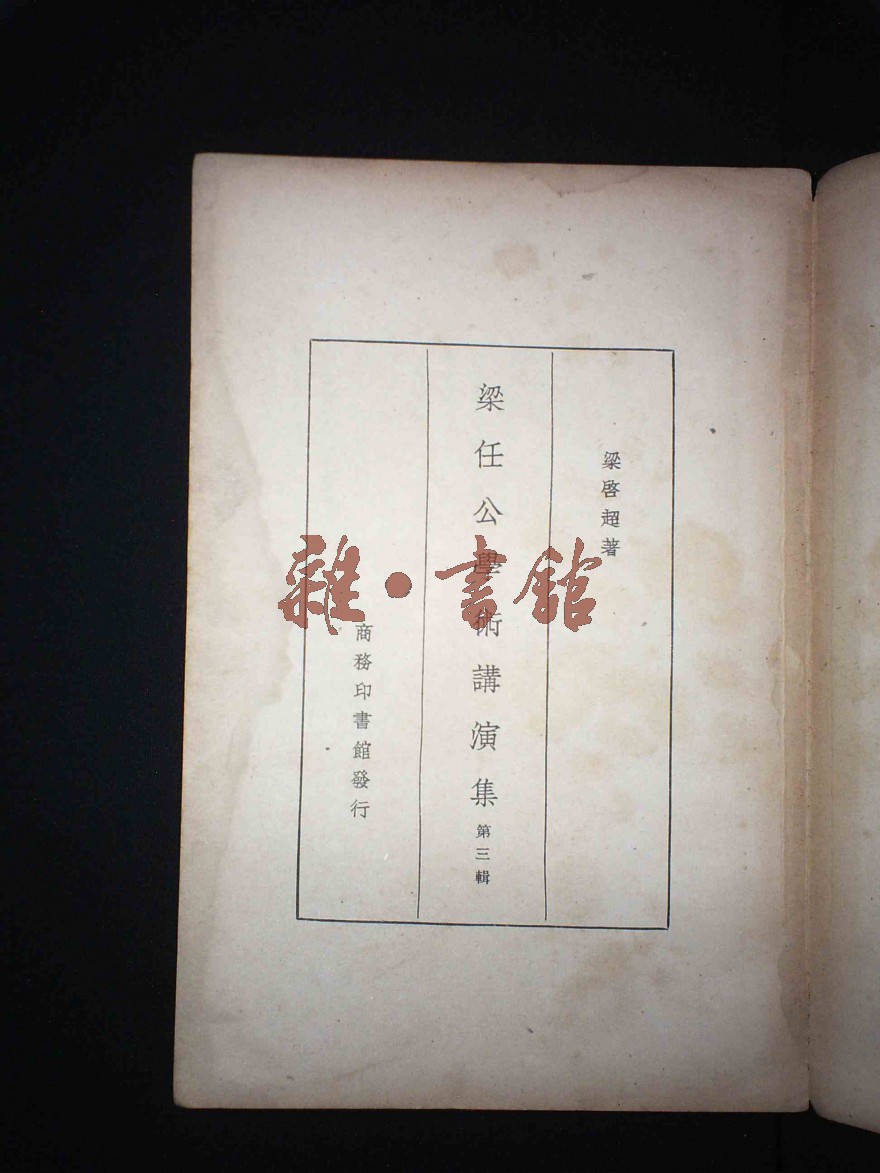 梁啓超著
梁任公學術講演集 第三輯
商務印書館發行
雜·書館